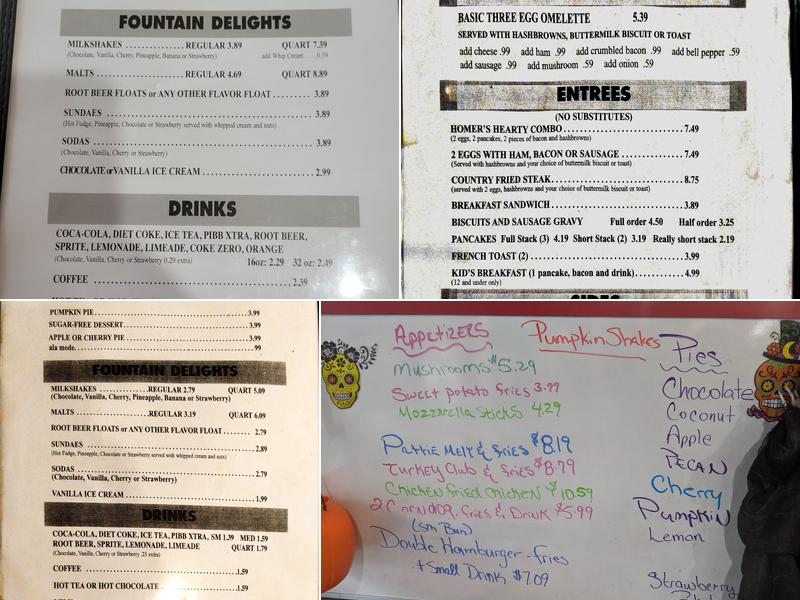 FOUNTAIN DELIGHTS
MILKSHAKES .................. REGULAR 3.89 QUART 7.39
(Chocolate, Vanilla, Cherry, Pineapple, Banana or Strawberry) add Whip Cream .... 0.39
MALTS ............................ REGULAR 4.69 QUART 8.89
ROOT BEER FLOATS or ANY OTHER FLAVOR FLOAT ......... 3.89
SUNDAES ........................................................ 3.89
(Hot Fudge, Pineapple, Chocolate or Strawberry served with whipped cream and nuts)
SODAS ........................................................ 3.89
(Chocolate, Vanilla, Cherry or Strawberry)
CHOCOLATE or VANILLA ICE CREAM ............................ 2.99
DRINKS
COCA-COLA, DIET COKE, ICE TEA, PIBB XTRA, ROOT BEER,
SPRITE, LEMONADE, LIMEADE, COKE ZERO, ORANGE
(Chocolate, Vanilla, Cherry or Strawberry 0.29 extra) 16oz: 2.29 32 oz: 2.49
COFFEE ........................................................ 2.39
BASIC THREE EGG OMELETTE 5.39
SERVED WITH HASHBROWNS, BUTTERMILK BISCUIT OR TOAST
add cheese .99 add ham .99 add crumbled bacon .99 add bell pepper .59
add sausage .99 add mushroom .59 add onion .59
ENTREES
(NO SUBSTITUTES)
HOMER'S HEARTY COMBO ........................................ 7.49
(2 eggs, 2 pancakes, 2 pieces of bacon and hashbrowns)
2 EGGS WITH HAM, BACON OR SAUSAGE ...................... 7.49
(Served with hashbrowns and your choice of buttermilk biscuit or toast)
COUNTRY FRIED STEAK ........................................ 8.75
(served with 2 eggs, hashbrowns and your choice of buttermilk biscuit or toast)
BREAKFAST SANDWICH ........................................ 3.89
BISCUITS AND SAUSAGE GRAVY Full order 4.50 Half order 3.25
PANCAKES Full Stack (3) 4.19 Short Stack (2) 3.19 Really short stack 2.19
FRENCH TOAST (2) ............................................ 3.99
KID'S BREAKFAST (1 pancake, bacon and drink) .................. 4.99
(12 and under only)
SIDES
PUMPKIN PIE ........................................ 3.99
SUGAR-FREE DESSERT ................................ 3.99
APPLE OR CHERRY PIE ................................ 3.99
ala mode ............................................ .99
FOUNTAIN DELIGHTS
MILKSHAKES .................. REGULAR 2.79 QUART 5.09
(Chocolate, Vanilla, Cherry, Pineapple, Banana or Strawberry)
MALTS ........................ REGULAR 3.19 QUART 6.09
ROOT BEER FLOATS or ANY OTHER FLAVOR FLOAT ........ 2.79
SUNDAES ................................................ 2.89
(Hot Fudge, Pineapple, Chocolate or Strawberry served with whipped cream and nuts)
SODAS ................................................ 2.79
(Chocolate, Vanilla, Cherry or Strawberry)
VANILLA ICE CREAM ................................ 1.99
DRINKS
COCA-COLA, DIET COKE, ICE TEA, PIBB XTRA, SM 1.39 MED 1.59
ROOT BEER, SPRITE, LEMONADE, LIMEADE QUART 1.79
(Chocolate, Vanilla, Cherry or Strawberry .25 extra)
COFFEE ................................................ 1.59
HOT TEA OR HOT CHOCOLATE ........................ 1.59
Appetizers
Mushrooms $5.29
Sweet potato fries 3.99
Mozzarella Sticks 4.29
Pattie Melt & fries $8.19
Turkey Club & fries $8.79
Chicken Fried Chicken $10.59
2 Corndog, fries & Drink $5.99
(sm Bun)
Double Hamburger - fries
+ Small Drink $7.09
Pumpkin Shakes
Pies
Chocolate
Coconut
Apple
PECAN
Cherry
Pumpkin
Lemon
Strawberry